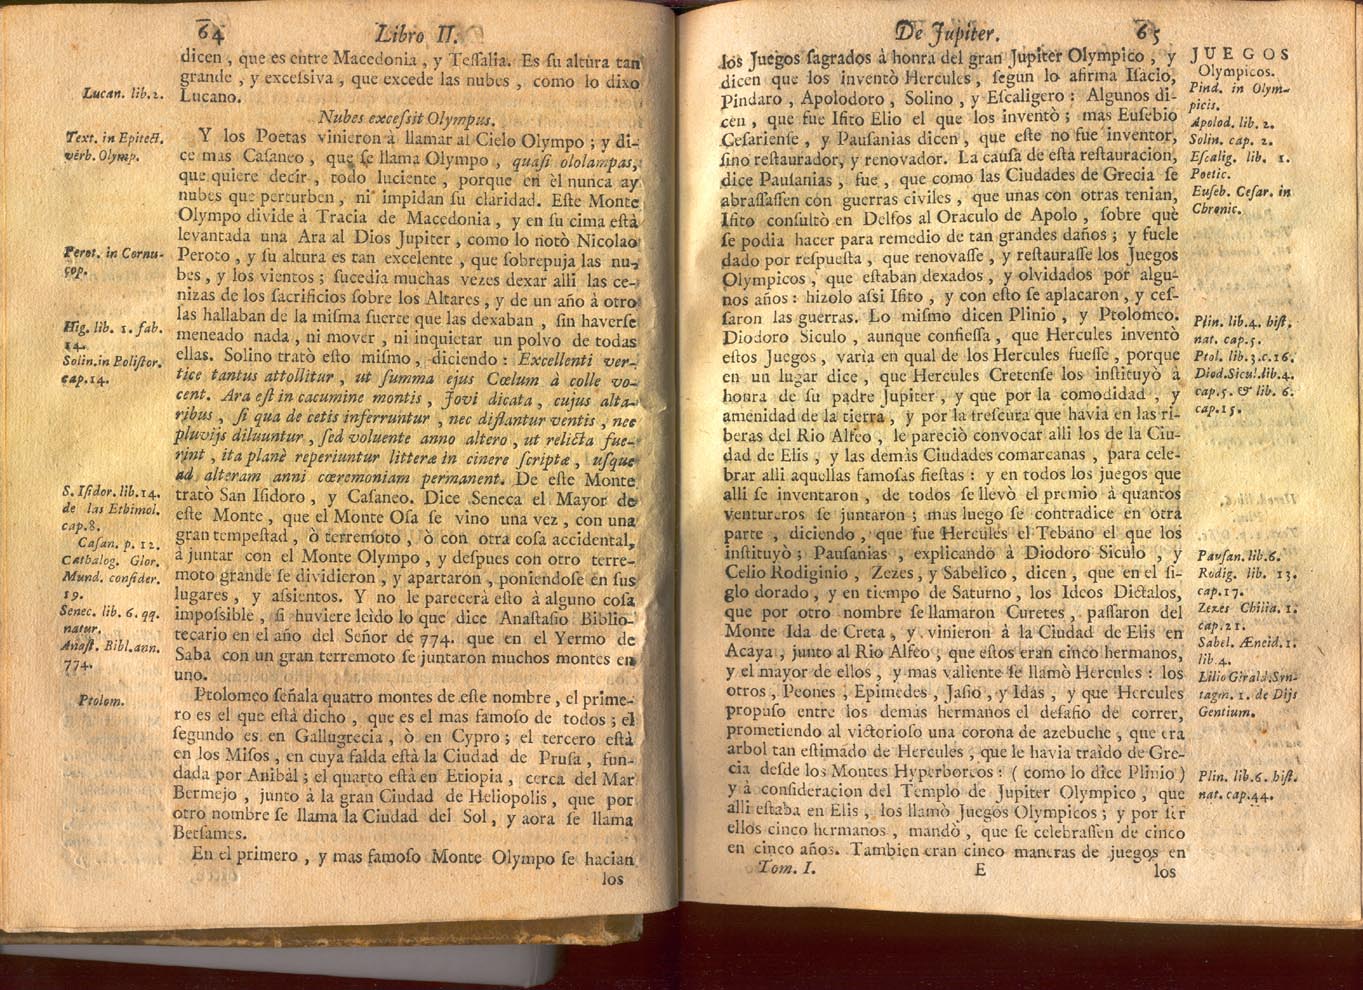 64 Libro II.
dicen, que es entre Macedonia, y Teſſalia. Es ſu altura tan
grande, y exceſsiva, que excede las nubes, como lo dixo
Lucan. lib. 2.
Lucano.
Nubes exceſsit Olympus.
Text. in Epitect.
verb. Olymp.
Y los Poetas vinieron à llamar al Cielo Olympo; y di-
ce mas Caſaneo, que ſe llama Olympo, quaſi ololampas,
que quiere decir, todo luciente, porque en èl nunca ay
nubes que perturben, ni impidan ſu claridad. Eſte Monte
Olympo divide à Tracia de Macedonia, y en ſu cima eſtà
levantada una Ara al Dios Jupiter, como lo notò Nicolao
Perot. in Cornu-
cop.
Peroto, y ſu altura es tan excelente, que ſobrepuja las nu-
bes, y los vientos; ſucedia muchas vezes dexar alli las ce-
nizas de los ſacrificios ſobre los Altares, y de un año à otro
las hallaban de la miſma ſuerte que las dexaban, ſin haverſe
Hig. lib. 1. fab.
14.
meneado nada, ni mover, ni inquietar un polvo de todas
Solin. in Poliſtor.
cap. 14.
ellas. Solino tratò eſto miſmo, diciendo: Excellenti ver-
tice tantus attollitur, ut ſumma ejus Cœlum à colle vo-
cent. Ara eſt in cacumine montis, Jovi dicata, cujus alta-
ribus, ſi qua de cetis inferruntur, nec diflantur ventis, nec
pluvijs diluuntur, ſed voluente anno altero, ut relicta fue-
rint, ita planè reperiuntur litteræ in cinere ſcriptæ, uſque
ad alteram anni cœremoniam permanent. De eſte Monte
S. Iſidor. lib. 14.
de las Ethimol.
cap. 8.
tratò San Iſidoro, y Caſaneo. Dice Seneca el Mayor de
eſte Monte, que el Monte Oſa ſe vino una vez, con una
gran tempeſtad, ò terremoto, ò con otra coſa accidental,
Caſan. p. 12.
Cathalog. Glor.
Mund. conſider.
19.
à juntar con el Monte Olympo, y deſpues con otro terre-
moto grande ſe dividieron, y apartaron, poniendoſe en ſus
lugares, y aſsientos. Y no le parecerà eſto à alguno coſa
Senec. lib. 6. qq.
natur.
impoſsible, ſi huviere leìdo lo que dice Anaſtaſio Biblio-
Anaſt. Bibl. ann.
774.
tecario en el año del Señor de 774. que en el Yermo de
Saba con un gran terremoto ſe juntaron muchos montes en
uno.
Ptolom.
Ptolomeo ſeñala quatro montes de eſte nombre, el prime-
ro es el que eſtà dicho, que es el mas famoſo de todos; el
ſegundo es en Gallugrecia, ò en Cypro; el tercero eſtà
en los Miſos, en cuya falda eſtà la Ciudad de Pruſa, fun-
dada por Anibàl; el quarto eſtà en Etiopia, cerca del Mar
Bermejo, junto à la gran Ciudad de Heliopolis, que por
otro nombre ſe llama la Ciudad del Sol, y aora ſe llama
Betſames.
En el primero, y mas famoſo Monte Olympo ſe hacian
los
De Jupiter. 65
los Juegos ſagrados à honra del gran Jupiter Olympico, y
JUEGOS
Olympicos.
dicen que los inventò Hercules, ſegun lo afirma Iſacio,
Pind. in Olym-
picis.
Pindaro, Apolodoro, Solino, y Eſcaligero: Algunos di-
cen, que fue Iſito Elio el que los inventò; mas Euſebio
Apolod. lib. 2.
Solin. cap. 2.
Eſcalig. lib. 1.
Poetic.
Euſeb. Ceſar. in
Chronic.
Ceſarienſe, y Pauſanias dicen, que eſte no fue inventor,
ſino reſtaurador, y renovador. La cauſa de eſta reſtauracion,
dice Pauſanias, fue, que como las Ciudades de Grecia ſe
abraſſaſſen con guerras civiles, que unas con otras tenian,
Iſito conſultò en Delfos al Oraculo de Apolo, ſobre què
ſe podia hacer para remedio de tan grandes daños; y fuele
dado por reſpueſta, que renovaſſe, y reſtauraſſe los Juegos
Olympicos, que eſtaban dexados, y olvidados por algu-
nos años: hizolo aſsi Iſito, y con eſto ſe aplacaron, y ceſ-
ſaron las guerras. Lo miſmo dicen Plinio, y Ptolomeo.
Plin. lib. 4. hiſt.
nat. cap. 5.
Ptol. lib. 3. c. 16.
Diod. Sicul. lib. 4.
cap. 5. & lib. 6.
cap. 15.
Diodoro Siculo, aunque confieſſa, que Hercules inventò
eſtos Juegos, varìa en qual de los Hercules fueſſe, porque
en un lugar dice, que Hercules Cretenſe los inſtituyò à
honra de ſu padre Jupiter, y que por la comodidad, y
amenidad de la tierra, y por la freſcura que havia en las ri-
beras del Rio Alfeo, le pareciò convocar alli los de la Ciu-
dad de Elis, y las demàs Ciudades comarcanas, para cele-
brar alli aquellas famoſas fieſtas: y en todos los juegos que
alli ſe inventaron, de todos ſe llevò el premio à quantos
ventureros ſe juntaron; mas luego ſe contradice en otra
parte, diciendo, que fue Hercules el Tebano el que los
Pauſan. lib. 6.
Rodig. lib. 13.
cap. 17.
inſtituyò; Pauſanias, explicando à Diodoro Siculo, y
Celio Rodiginio, Zezes, y Sabelico, dicen, que en el ſi-
glo dorado, y en tiempo de Saturno, los Ideos Dictalos,
Zezes Chilia. 1.
cap. 21.
que por otro nombre ſe llamaron Curetes, paſſaron del
Monte Ida de Creta, y vinieron à la Ciudad de Elis en
Sabel. Æneid. 1.
lib. 4.
Acaya, junto al Rio Alfeo, que eſtos eran cinco hermanos,
y el mayor de ellos, y mas valiente ſe llamò Hercules: los
Lilio Girald. Syn-
tagm. 1. de Dijs
Gentium.
otros, Peones, Epimedes, Jaſio, y Idas, y que Hercules
propuſo entre los demàs hermanos el deſafio de correr,
prometiendo al victorioſo una corona de azebuche, que era
arbol tan eſtimado de Hercules, que le havia traìdo de Gre-
cia deſde los Montes Hyperboreos: (como lo dice Plinio)
Plin. lib. 6. hiſt.
nat. cap. 44.
y à conſideracion del Templo de Jupiter Olympico, que
alli eſtaba en Elis, los llamò Juegos Olympicos; y por ſer
ellos cinco hermanos, mandò, que ſe celebraſſen de cinco
en cinco años. Tambien eran cinco maneras de juegos en
Tom. I. E los